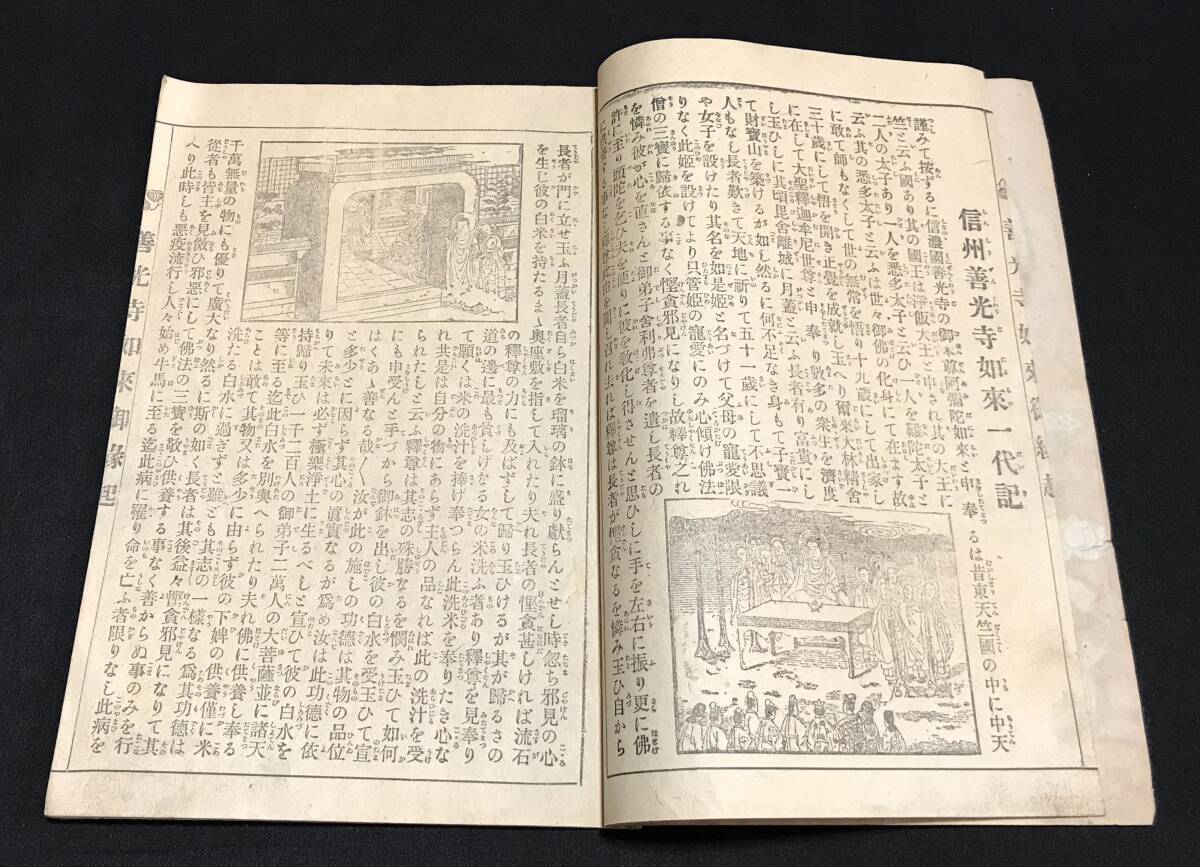 信州善光寺如來一代記
謹みて按ずるに信濃國善光寺の御本尊阿彌陀如來と申奉るは昔東天竺國の中に中天
竺と云ふ國あり其の國王は淨飯大王と申され其の大王に
二人の太子あり一人を悉多太子と云ひ一人を難陀太子と
云ふ其の悉多太子と云ふは世々御佛の化身にて在ます故
に敢て師もなくして世の無常を悟り十九歳にして出家し
三十歳にして悟を開き正覺を成就し玉へり爾來大林精舍
に在して大聖釋迦牟尼世尊と申奉り數多の衆生を濟度
し玉ひしに其頃毘舍離城に月蓋と云ふ長者有り富貴にし
て財寶山を築けるが如し然るに何不足なき身もて子寶一
人もなし長者歎きて天地に祈りて五十一歳にして不思議
や女子を設けたり其名を如是姫と名づけて父母の寵愛限
りなく此姫を設けてより只管姫の寵愛にのみ心傾け佛法
僧の三寶に歸依する事なく慳貪邪見になりし故釋尊之れ
を憐み彼が心を直さんと御弟子舍利弗尊者を遣し長者の
許に至り頭陀を乞ひ夫を便りに彼を敎化し得させんと思ひしに手を左右に振り更に佛
長者が門に立せ玉ふ月蓋長者自ら白米を瑠璃の鉢に盛り獻らんとせし時忽ち邪見の心
を生じ彼の白米を持たるまゝ奥座敷を指して入れたり夫れ長者の慳貪甚しければ流石
の釋尊の力にも及ばずして歸り玉ひけるが其が歸るさの
道の邊に最も貧しげなる女の米洗ふ者あり釋尊を見奉り
て願くは米の洗汁を捧げ奉つらん此洗米を奉りたき心な
れ共是は自分の物にあらず主人の品なれば此の洗汁を受
られたしと云ふ釋尊は其志の殊勝なるを憫み玉ひて如何
にも申受んと手づから御鉢を出し彼の白水を受玉ひて宣
はくあゝ善なる哉〳〵汝が此の施しの功德は其物の品位
と多少とに因らず其心の眞實なるが爲め汝は此功德に依
りて未來は必ず極樂淨土に生るべしと宣ひて彼の白水を
持歸り玉ひ一千二百人の御弟子二萬人の大菩薩並に諸天
等に至る迄此白水を別與へられたり夫れ佛に供養し奉る
ことは敢て其物又は多少に由らず彼の下婢の供養は僅に米
洗たる白水に過ぎずと雖ども其志の一樣なる爲其功德は
千萬無量の物にも優りて廣大なり然るに斯の如く長者は其後益々慳貪邪見になりて其
從者も皆主を見傚ひ邪惡にして佛法の三寶を敬ひ供養する事なく善からぬ事のみを行
へり此時しも惡疫流行し人々始め牛馬に至る迄此病に罹り命を亡ふ者限りなし此病を
善光寺如來御緣起